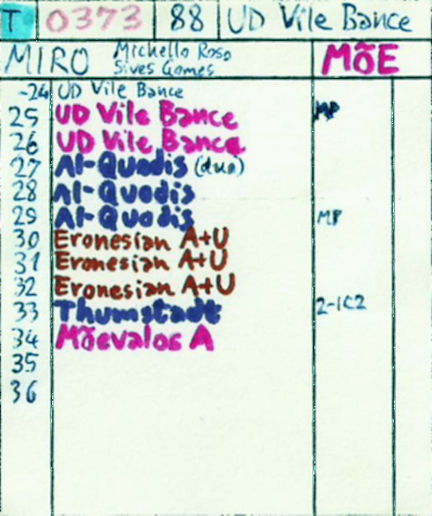 T 0373 88 UD Vile Bance
MIRO Michello Roso MÕE
Sives Gomes
-24 UD Vile Bance
25 UD Vile Bance MP
26 UD Vile Bance
27 Al-Quodis (duo)
28 Al-Quodis
29 Al-Quodis MP
30 Eronesian A+U
31 Eronesian A+U
32 Eronesian A+U
33 Thumstadt 2-1C2
34 Mõevalos A
35
36